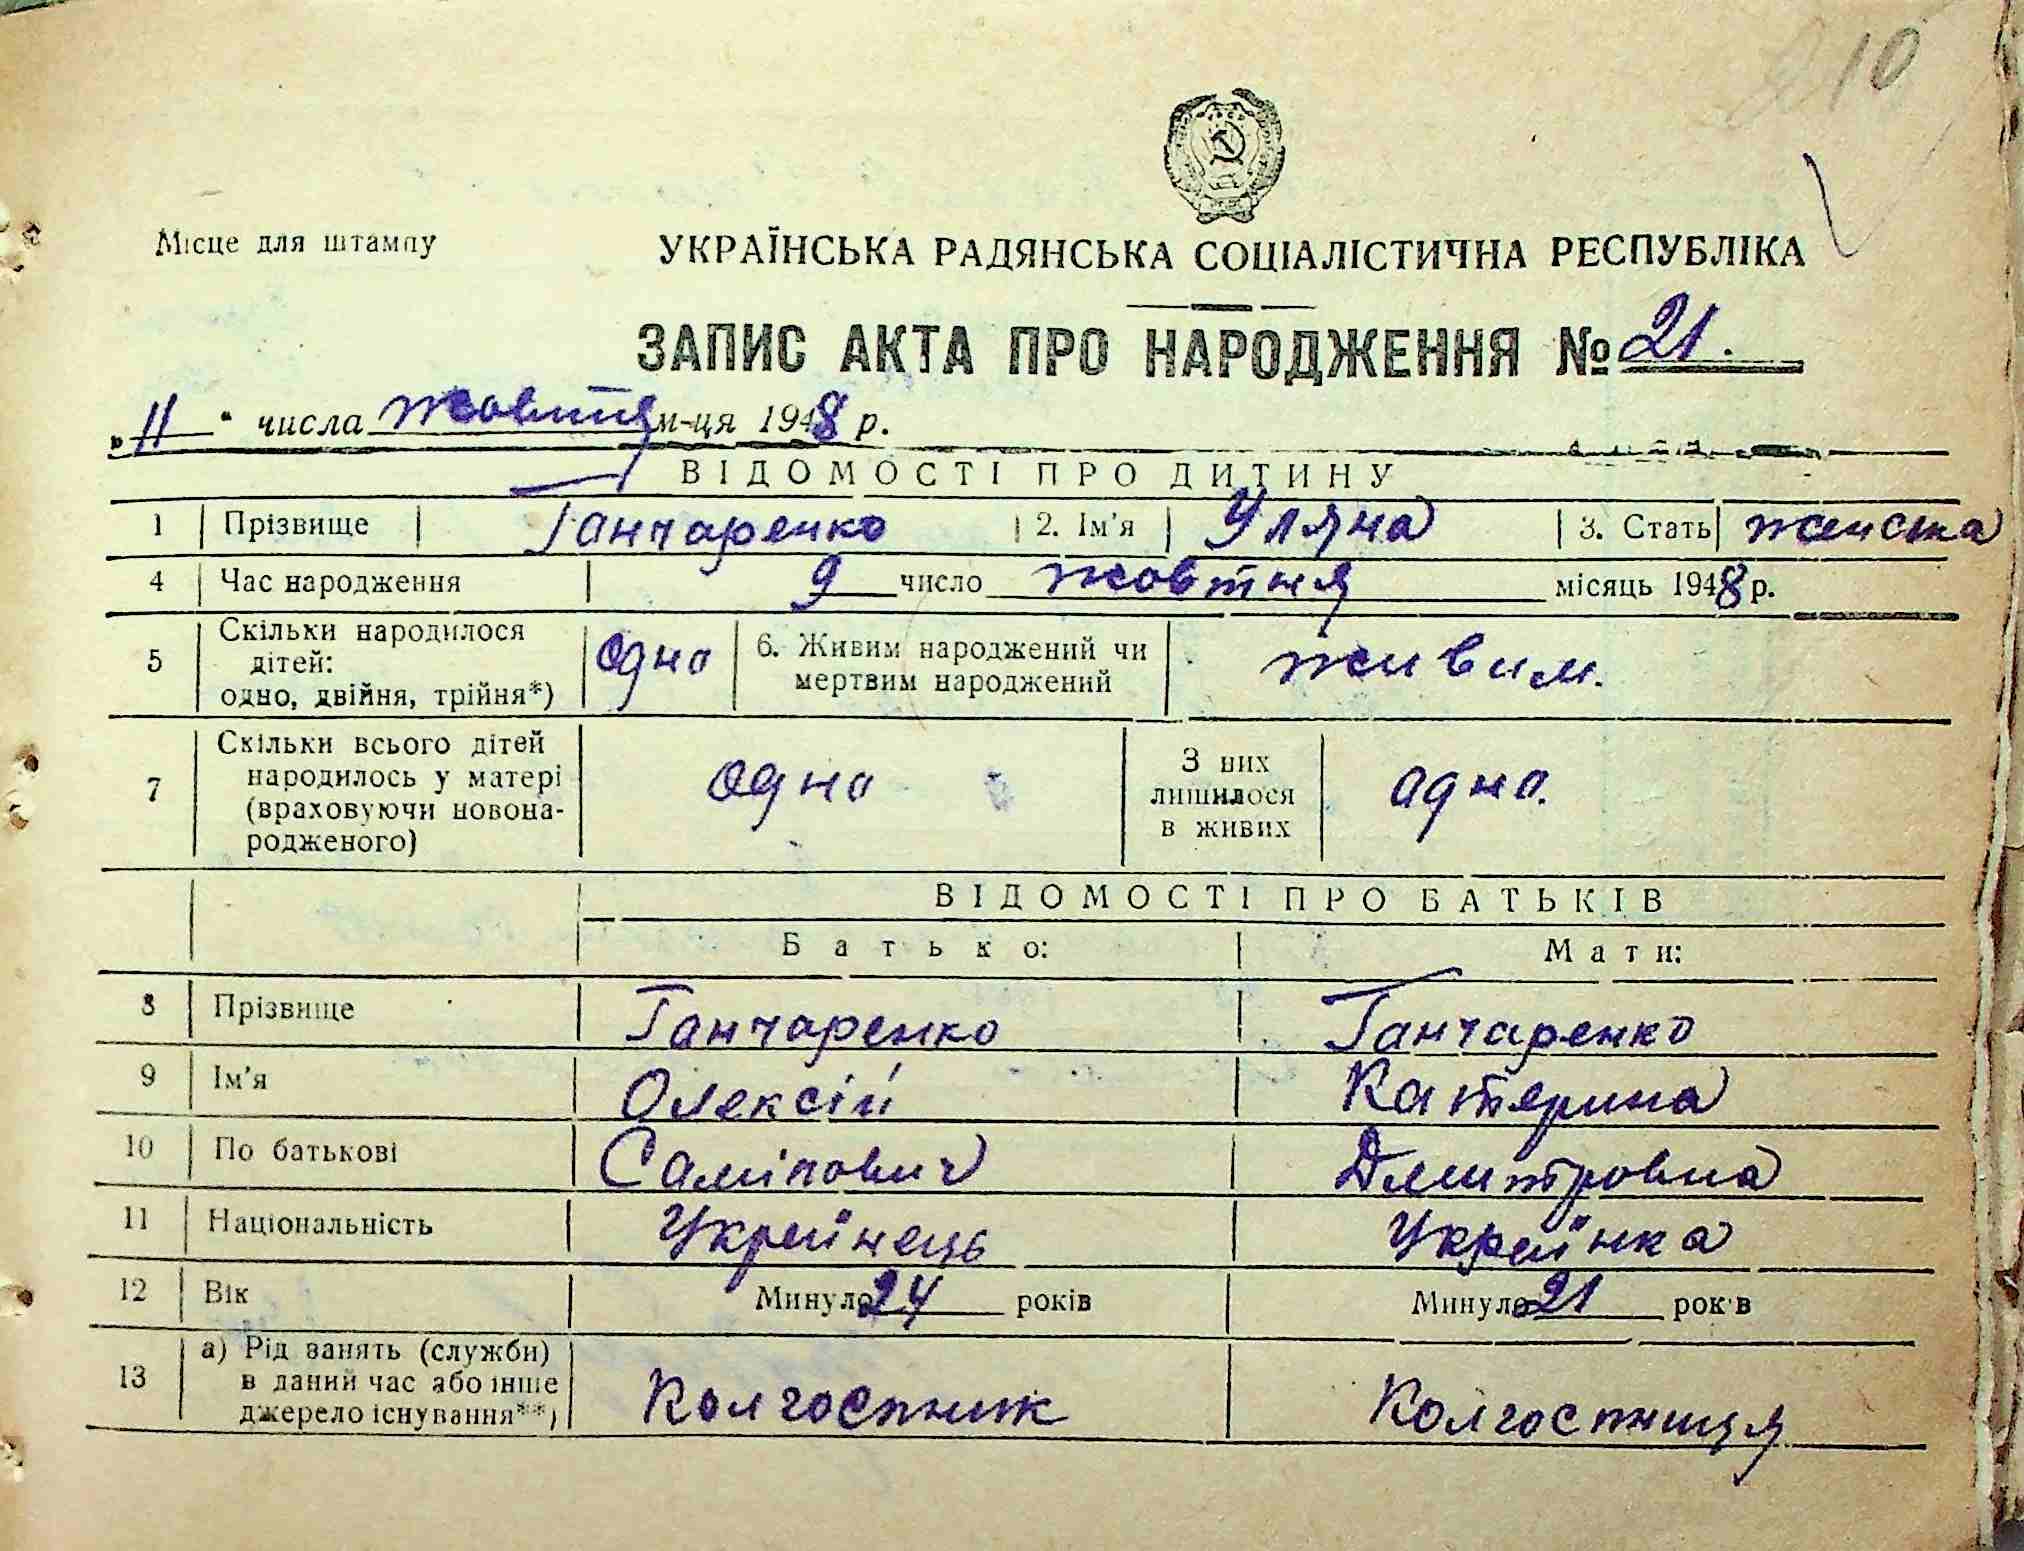 10
Місце для штампу
УКРАЇНСЬКА РАДЯНСЬКА СОЦІАЛІСТИЧНА РЕСПУБЛІКА
ЗАПИС АКТА ПРО НАРОДЖЕННЯ № 21.
„11“ числа жовтня м-ця 1948 р.
ВІДОМОСТІ ПРО ДИТИНУ
1 Прізвище Ганчаренко 2. Ім'я Уляна 3. Стать жінська
4 Час народження 9 число жовтня місяць 1948 р.
5 Скільки народилося дітей: одно, двійня, трійня*) одно 6. Живим народжений чи мертвим народжений живим.
7 Скільки всього дітей народилось у матері (враховуючи новонародженого) одно З них лишилося в живих одно.
ВІДОМОСТІ ПРО БАТЬКІВ
Батько: Мати:
8 Прізвище Ганчаренко Ганчаренко
9 Ім'я Олексій Катерина
10 По батькові Дмитровна
11 Національність Українець Українка
12 Вік Минуло 24 років Минуло 21 років
13 а) Рід занять (служби) в даний час або інше джерело існування**) Колгоспник Колгоспниця